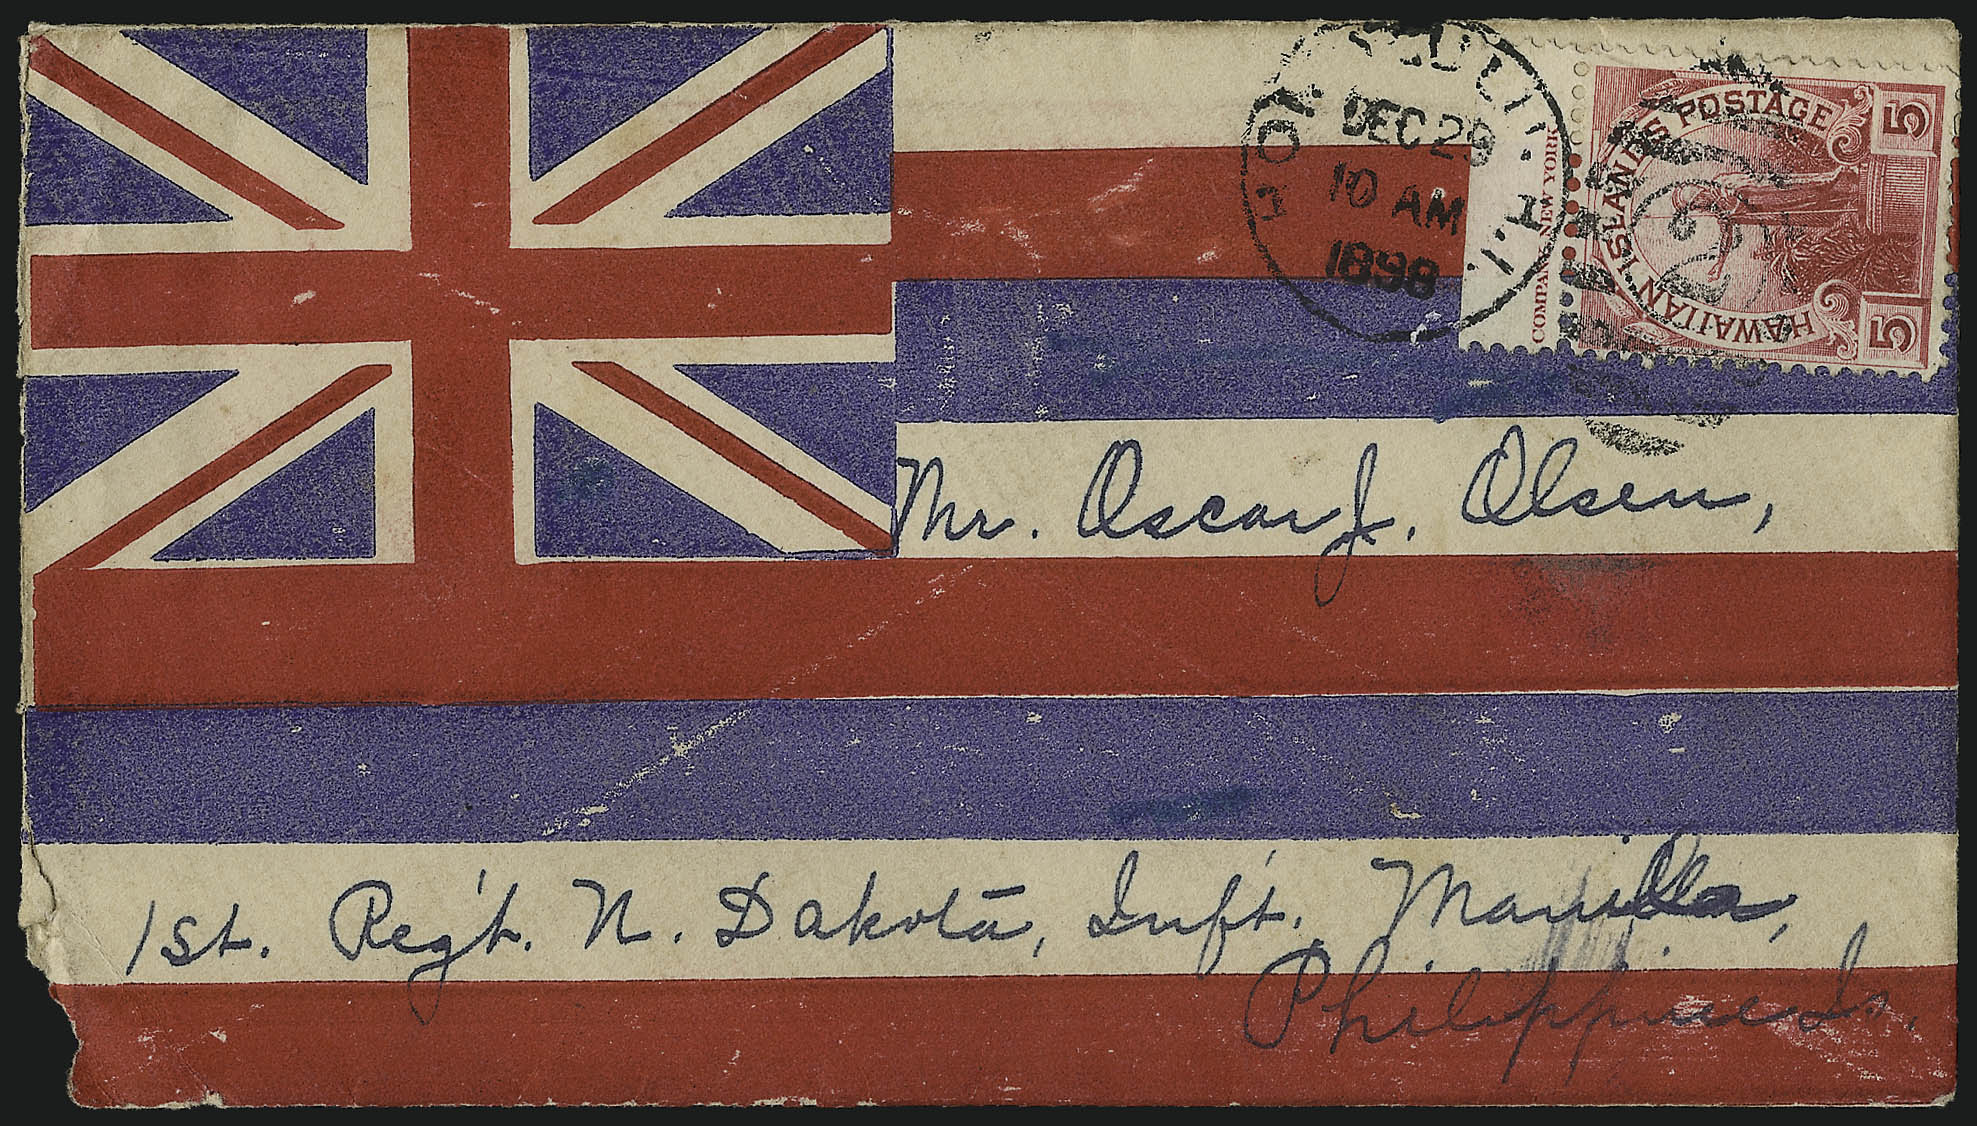 HONOLULU. H.I.
DEC 29
10 AM
1898
COMPANY NEW YORK
HAWAIIAN ISLANDS POSTAGE
5
5
2
Mr. Oscar J. Olsen,
1st. Reg't. N. Dakota, Inf't. Manilla,
Philippine Is.